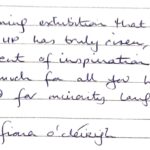 ning exhibition that
UP has truly risen,
ent of inspiration
much for all you h
d for minority lang
fiona o'cléirigh